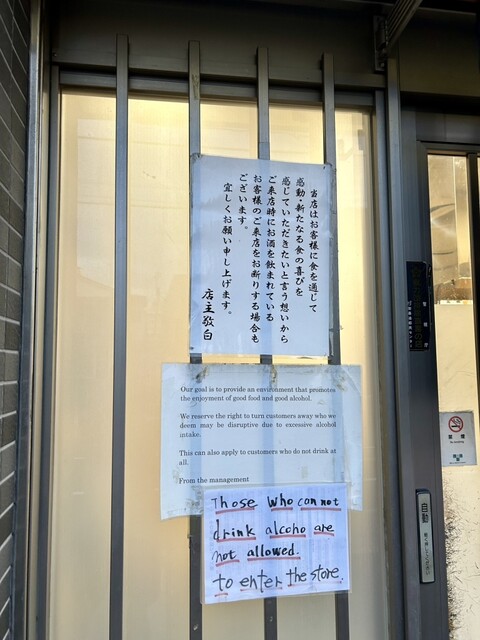 当店はお客様に食を通じて
感動・新たなる食の喜びを
感じていただきたいと言う想いから
ご来店時にお酒を飲まれている
お客様のご来店をお断りする場合も
ございます。
宜しくお願い申し上げます。
店主敬白
Our goal is to provide an environment that promotes
the enjoyment of good food and good alcohol.
We reserve the right to turn customers away who we
deem may be disruptive due to excessive alcohol
intake.
This can also apply to customers who do not drink at
all.
From the management
Those who can not
drink alcoho are
not allowed.
to enter the store.
禁煙
自動